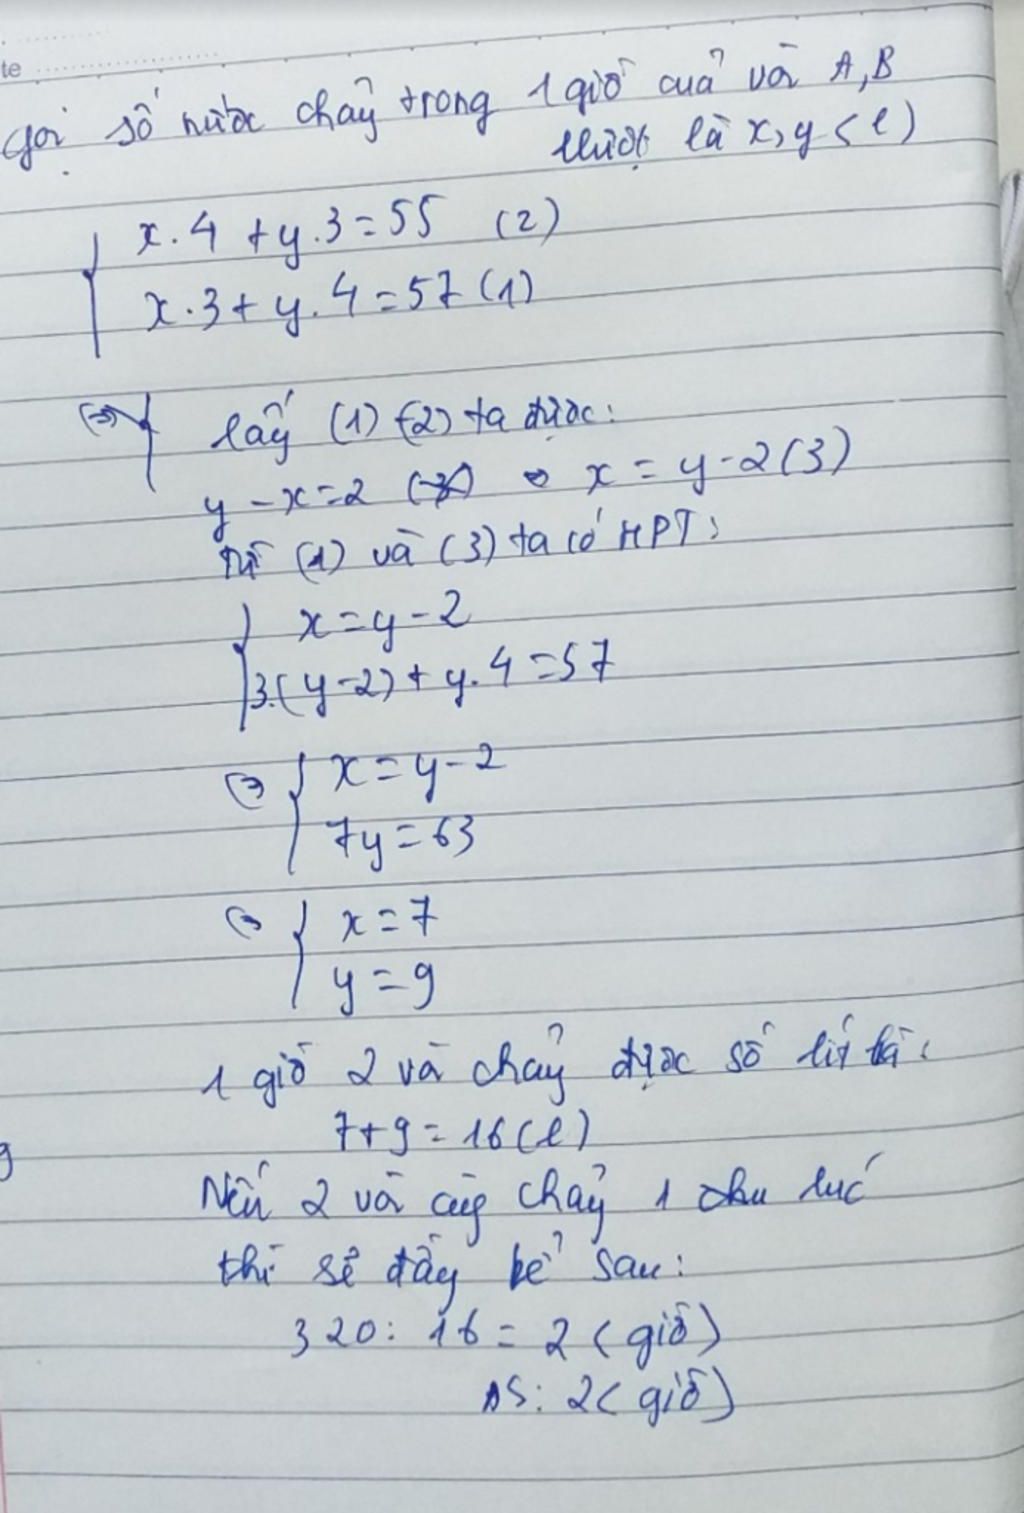 te
Gọi số nước chảy trong 1 giờ của vòi A, B
lần lượt là x, y (l)
x.4 + y.3 = 55 (2)
x.3 + y.4 = 57 (1)
(=)
lấy (1) - (2) ta được:
y - x = 2 x = y - 2 (3)
từ (1) và (3) ta có HPT:
x = y - 2
3.(y-2) + y.4 = 57
(=) x = y - 2
7y = 63
(=) x = 7
y = 9
1 giờ 2 vòi chảy được số lít là:
7 + 9 = 16 (l)
Nếu 2 vòi cùng chảy 1 lúc
thì sẽ đầy bể sau:
320 : 16 = 2 (giờ)
ĐS: 2 (giờ)